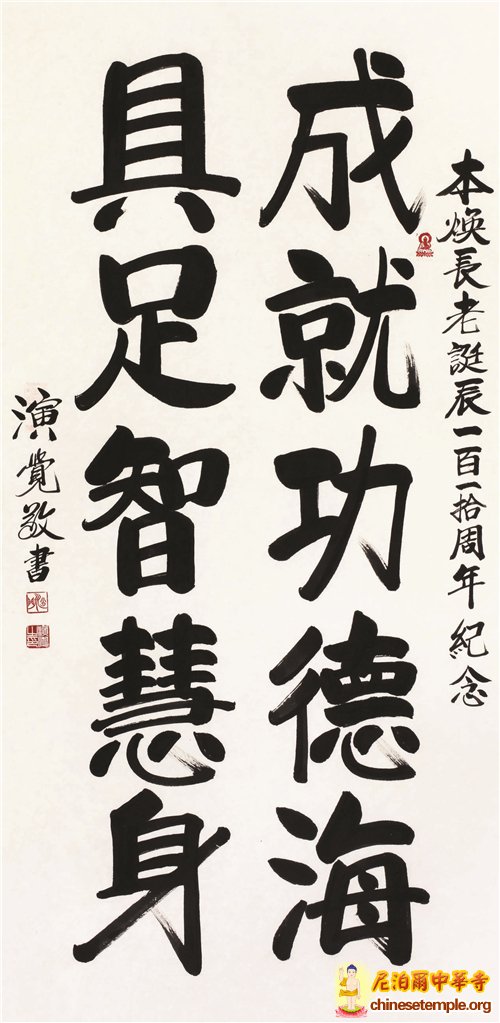 本焕長老誕辰一百一拾周年 紀念
成就功德海
具足智慧身
演覺敬書
尼泊爾中華寺
chinesetemple.org